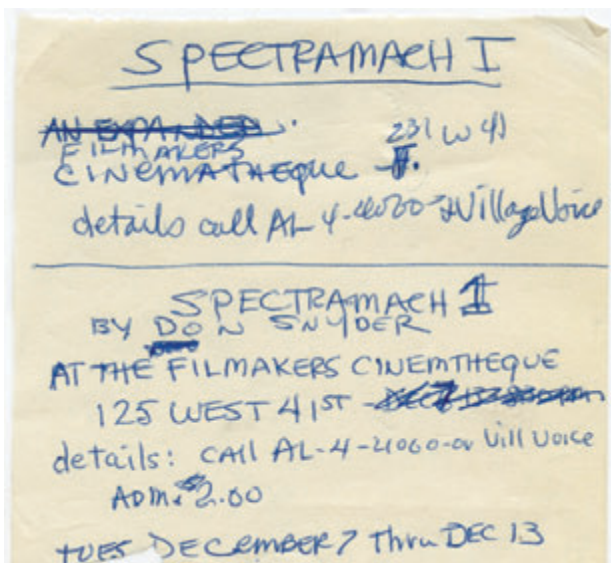 SPECTRAMACH I
AN EXPANDED
231 W 41
FILMAKERS
CINEMATHEQUE
details call AL 4-4060 Village Voice
SPECTRAMACH I
BY DON SNYDER
AT THE FILMAKERS CINEMTHEQUE
125 WEST 41ST
details: CALL AL-4-4060-or Vill Voice
ADM. $2.00
TUES DECEMBER 7 thru DEC 13